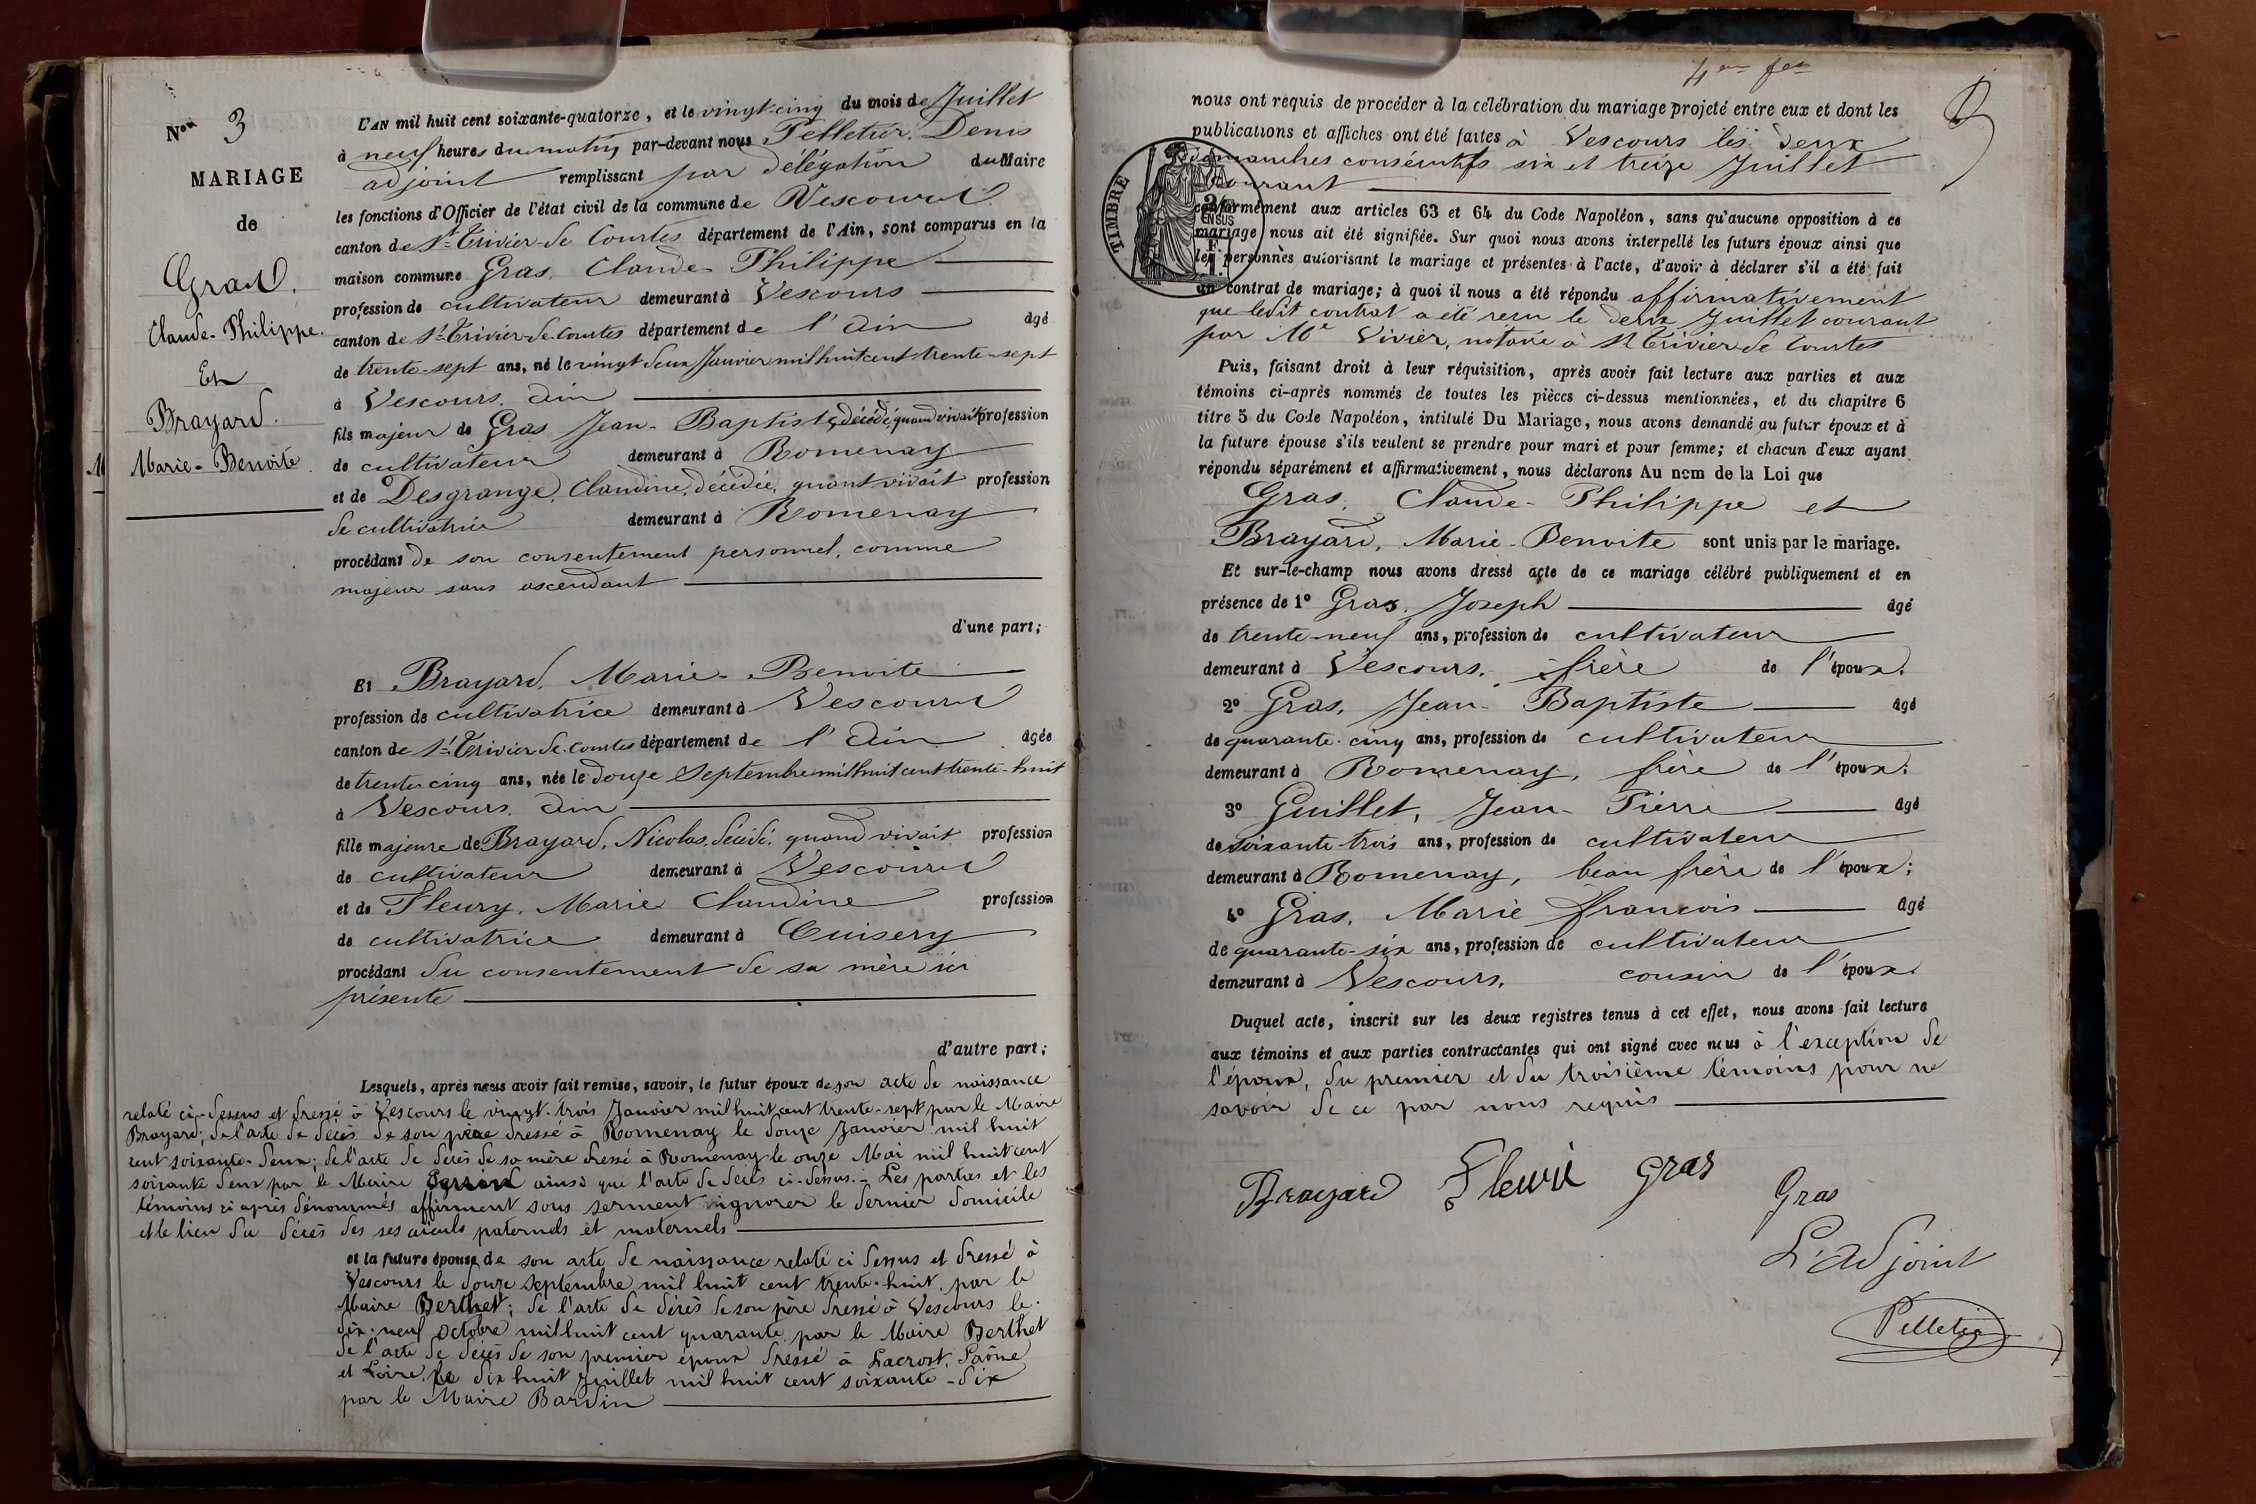 Nos 3
MARIAGE
de
Gras.
Claude-Philippe.
Et
Brayard.
Marie-Benoite.
L'AN mil huit cent soixante-quatorze, et le vingt-cinq du mois de Juillet
à neuf heures du matin par-devant nous Pelletier Denis
adjoint remplissant par délégation du Maire
les fonctions d'Officier de l'état civil de la commune de Vescours
canton de St-Trivier-de Courtes département de l'Ain, sont comparus en la
maison commune Gras, Claude-Philippe
profession de cultivateur demeurant à Vescours
canton de St-Trivier-de-Courtes département de l'Ain âgé
de trente-sept ans, né le vingt deux Janvier mil huit cent trente-sept
à Vescours, Ain
fils majeur de Gras Jean-Baptiste, décédé, quand vivait profession
de cultivateur demeurant à Romenay
et de Desgrange, Claudine, décédée, quant vivait profession
de cultivatrice demeurant à Romenay
procédant de son consentement personnel, comme
majeur sans ascendant
d'une part;
Et Brayard, Marie-Benoite
profession de cultivatrice demeurant à Vescours
canton de St-Trivier-de-Courtes département de l'Ain âgée
de trente cinq ans, née le douze Septembre mil huit cent trente-huit
à Vescours, Ain
fille majeure de Brayard, Nicolas, décédé, quand vivait profession
de cultivateur demeurant à Vescours
et de Fleury, Marie Claudine profession
de cultivatrice demeurant à Cuisery
procédant du consentement de sa mère ici
présente
d'autre part;
Lesquels, après nous avoir fait remise, savoir, le futur époux de son acte de naissance
relaté ci-dessus et dressé à Vescours le vingt-trois Janvier mil huit cent trente-sept par le Maire
Brayard; de l'acte de décès de son père dressé à Romenay le douze Janvier mil huit
cent soixante-deux; de l'acte de décès de sa mère dressé à Romenay le onze Mai mil huit cent
soixante deux par le Maire ainsi que l'acte de décès ci-dessus.- Les parties et les
témoins ci après dénommés affirment sous serment ignorer le dernier domicile
et le lieu du décès des ses aïeuls paternels et maternels
et la future épouse de son acte de naissance relaté ci dessus et dressé à
Vescours le douze septembre mil huit cent trente-huit, par le
Maire Berthet; de l'acte de décès de son père dressé à Vescours le
dix-neuf Octobre mil huit cent quarante par le Maire Berthet
de l'acte de décès de son premier époux dressé à Lacrost, Saône
et Loire, le dix huit Juillet mil huit cent soixante-dix
par le Maire Bardin
nous ont requis de procéder à la célébration du mariage projeté entre eux et dont les
publications et affiches ont été faites à Vescours les deux
dimanches consécutifs six et treize Juillet
courant
conformément aux articles 63 et 64 du Code Napoléon, sans qu'aucune opposition à ce
mariage nous ait été signifiée. Sur quoi nous avons interpellé les futurs époux ainsi que
les personnes autorisant le mariage et présentes à l'acte, d'avoir à déclarer s'il a été fait
un contrat de mariage; à quoi il nous a été répondu affirmativement
que ledit contrat a été reçu le deux Juillet courant
par Me Vivier, notaire à St Trivier-de Courtes
TIMBRE
EN SUS
Puis, faisant droit à leur réquisition, après avoir fait lecture aux parties et aux
témoins ci-après nommés de toutes les pièces ci-dessus mentionnées, et du chapitre 6
titre 5 du Code Napoléon, intitulé Du Mariage, nous avons demandé au futur époux et à
la future épouse s'ils veulent se prendre pour mari et pour femme; et chacun d'eux ayant
répondu séparément et affirmativement, nous déclarons Au nom de la Loi que
Gras, Claude-Philippe et
Brayard, Marie-Benoite sont unis par le mariage.
Et sur-le-champ nous avons dressé acte de ce mariage célébré publiquement et en
présence de 1° Gras, Joseph âgé
de trente-neuf ans, profession de cultivateur
demeurant à Vescours, frère de l'époux.
2° Gras, Jean-Baptiste âgé
de quarante-cinq ans, profession de cultivateur
demeurant à Romenay, frère de l'époux;
3° Guillet, Jean-Pierre âgé
de soixante-trois ans, profession de cultivateur
demeurant à Romenay, beau frère de l'époux;
4° Gras, Marie François âgé
de quarante-six ans, profession de cultivateur
demeurant à Vescours, cousin de l'époux.
Duquel acte, inscrit sur les deux registres tenus à cet effet, nous avons fait lecture
aux témoins et aux parties contractantes qui ont signé avec nous à l'exception de
l'époux, du premier et du troisième témoins pour ne
savoir de ce par nous requis
Brayard Fleuri Gras
Gras
L'Adjoint
Pelletier